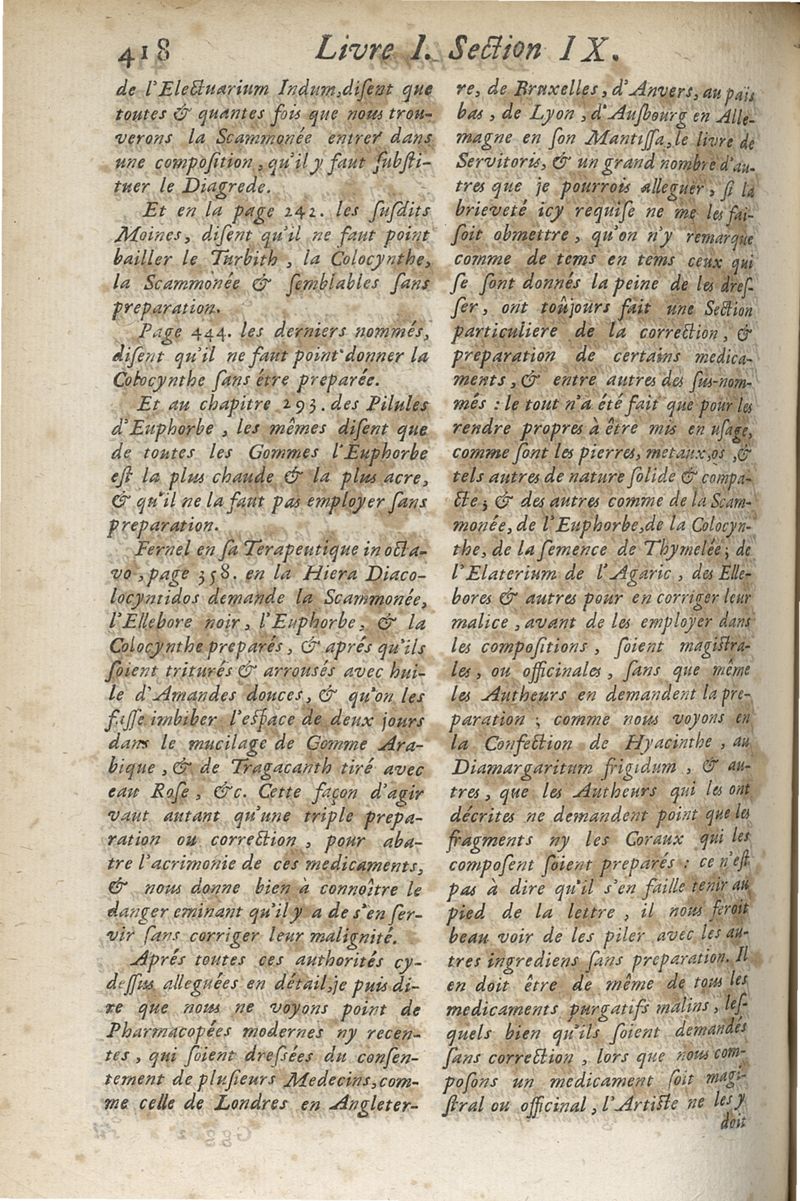 418 Livre I. Section IX.
de l'Electuarium Indum, diſent que
toutes & quantes fois que nous trou-
verons la Scammonée entrer dans
une compoſition, qu'il y faut ſubſti-
tuer le Diagrede.
Et en la page 242. les ſuſdits
Moines, diſent qu'il ne faut point
bailler le Turbith, la Colocynthe,
la Scammonée & ſemblables ſans
preparation.
Page 444. les derniers nommés,
diſent qu'il ne faut point donner la
Colocynthe ſans étre preparée.
Et au chapitre 293. des Pilules
d'Euphorbe, les mêmes diſent que
de toutes les Gommes l'Euphorbe
eſt la plus chaude & la plus acre,
& qu'il ne la faut pas employer ſans
preparation.
Fernel en ſa Terapeutique in octa-
vo, page 358. en la Hiera Diaco-
locyntidos demande la Scammonée,
l'Ellebore noir, l'Euphorbe, & la
Colocynthe preparés, & aprés qu'ils
ſoient triturés & arrousés avec hui-
le d'Amandes douces, & qu'on les
faſſe imbiber l'eſpace de deux jours
dans le mucilage de Gomme Ara-
bique, & de Tragacanth tiré avec
eau Roſe, &c. Cette façon d'agir
vaut autant qu'une triple prepa-
ration ou correction, pour aba-
tre l'acrimonie de ces medicaments,
& nous donne bien à connoître le
danger eminant qu'il y a de s'en ſer-
vir ſans corriger leur malignité.
Aprés toutes ces authorités cy-
deſſus alleguées en détail, je puis di-
re que nous ne voyons point de
Pharmacopées modernes ny recen-
tes, qui ſoient dreſsées du conſen-
tement de pluſieurs Medecins, com-
me celle de Londres en Angleter-
re, de Bruxelles, d'Anvers, au païs
bas, de Lyon, d'Auſbourg en Alle-
magne en ſon Mantiſſa, le livre de
Servitoris, & un grand nombre d'au-
tres que je pourrois alleguer, ſi la
brieveté icy requiſe ne me les fai-
ſoit obmettre, qu'on n'y remarque
comme de tems en tems ceux qui
ſe ſont donnés la peine de les dreſ-
ſer, ont toûjours fait une Section
particuliere de la correction, &
preparation de certains medica-
ments, & entre autres des ſus-nom-
més : le tout n'a été fait que pour les
rendre propres à être mis en uſage,
comme ſont les pierres, metaux, os, &
tels autres de nature ſolide & compa-
cte ; & des autres comme de la Scam-
monée, de l'Euphorbe, de la Colocyn-
the, de la ſemence de Thymelée ; de
l'Elaterium de l'Agaric, des Elle-
bores & autres pour en corriger leur
malice, avant de les employer dans
les compoſitions, ſoient magiſtra-
les, ou officinales, ſans que même
les Autheurs en demandent la pre-
paration ; comme nous voyons en
la Confection de Hyacinthe, au
Diamargaritum frigidum, & au-
tres, que les Autheurs qui les ont
décrites ne demandent point que les
fragments ny les Coraux qui les
compoſent ſoient preparés : ce n'eſt
pas à dire qu'il s'en faille tenir au
pied de la lettre, il nous feroit
beau voir de les piler avec les au-
tres ingrediens ſans preparation. Il
en doit être de même de tous les
medicaments purgatifs malins, leſ-
quels bien qu'ils ſoient demandés
ſans correction, lors que nous com-
poſons un medicament ſoit magi-
ſtral ou officinal, l'Artiſte ne les y
doit